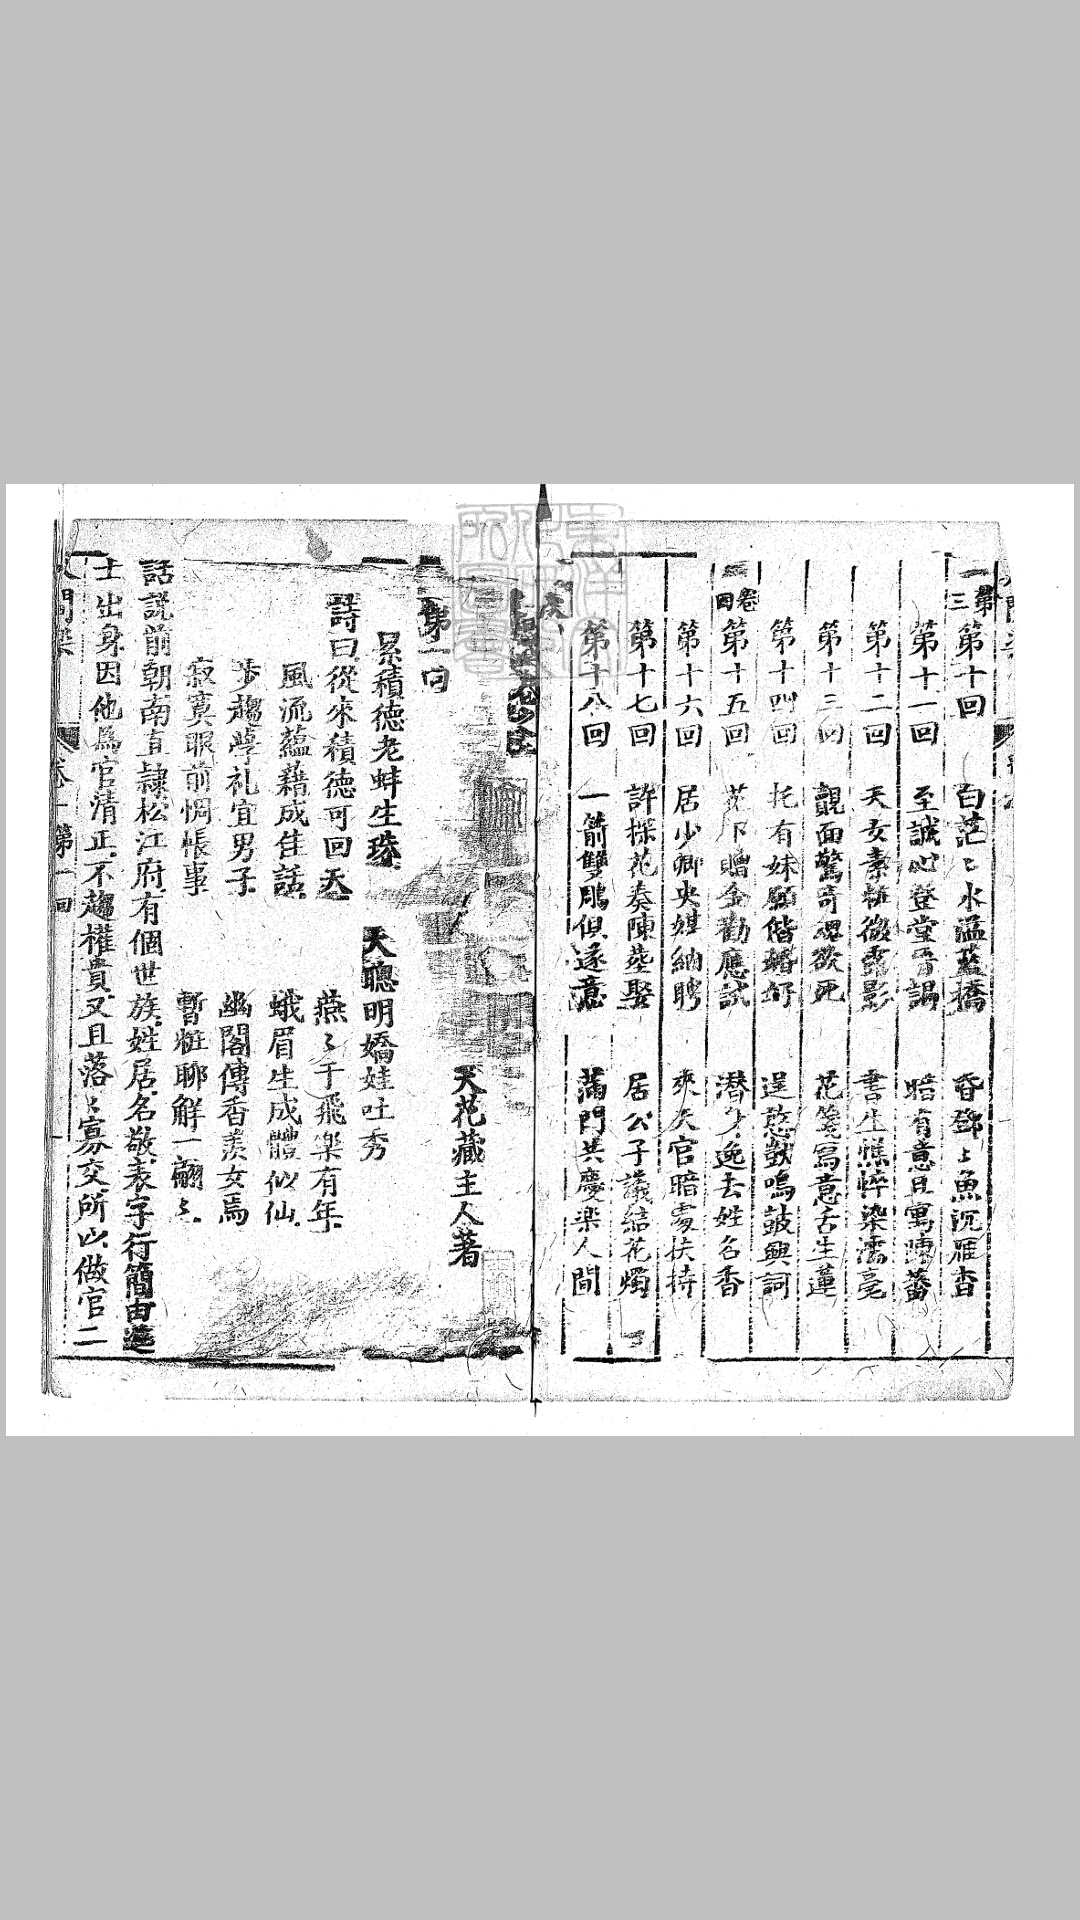 第三
第十回 白茫〻水溢藍橋 昏鄧〻魚沉雁杳
第十一回 至誠心登堂晋謁 暗有意且寓陳蕃
第十二回 天女素粧微露影 書生憔悴染濡毫
第十三回 覿面驚奇魂欲死 花箋寫意舌生蓮
第十四回 托有妹願偕婚好 逞憨獃鳴鼓興詞
卷四
第十五回 花下贈金勸應試 潜夕逸去姓名香
第十六回 居少卿央媒納聘 來天官暗處扶持
第十七回 許探花奏陳塟娶 居公子議結花燭
第十八回 一箭雙鵰俱遂意 蒲門共慶楽人間
天花藏主人著
第一回
累積德老蚌生珠 天聰明嬌娃吐秀
詩曰從來積德可回天 燕〻于飛楽有年
風流蘊藉成佳話 蛾眉生成體似仙
步趨學礼宜男子 幽閣傳香羨女焉
寂寞眼前惆悵事 暫粧聊解一翩〻
話說前朝南直隸松江府有個世族姓居名敬表字行簡由進
士出身因他為官清正不趨權貴又且落〻寡交所以做官二
人間楽 卷一 第一回